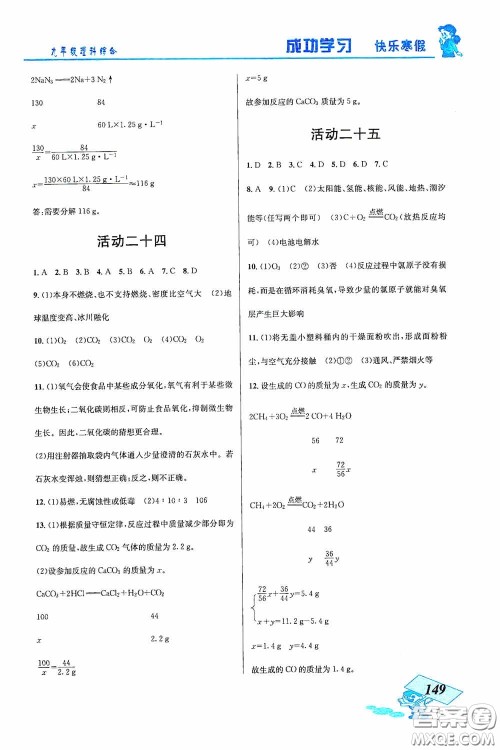 九年级理科综合
成功学习 快乐寒假
2NaN₃══2Na+3N₂↑
130 84
x 60 L×1.25 g·L⁻¹
130/x=84/(60 L×1.25 g·L⁻¹)
x=(130×60 L×1.25 g·L⁻¹)/84=116 g
答:需要分解116 g。
活动二十四
1. A 2. B 3. A 4. B 5. A 6. A 7. C 8. D
9. (1)本身不燃烧、也不支持燃烧、密度比空气大 (2)地
球温度变高、冰川融化
10. (1)CO₂ (2)CO₂ (3)CO₂ O₂ CO₂ (4)O₂
CO₂ O₂
11. (1)氧气会使食品中某些成分氧化,氧气有利于某些微
生物生长;二氧化碳则相反,可防止食品氧化,抑制微生物
生长。因此,二氧化碳的猜想更合理。
(2)用注射器抽取袋内气体通入少量澄清的石灰水中。若
石灰水浑浊,则猜想正确;反之,则错误。
12. (1)易燃、无腐蚀性或低毒 (2)4∶10∶3 106
13. (1)根据质量守恒定律,反应过程中质量减少部分即为
CO₂的质量。故生成CO₂气体的质量为2.2 g。
(2)设参加反应的CaCO₃的质量为x。
CaCO₃+2HCl══CaCl₂+H₂O+CO₂↑
100 44
x 2.2 g
100/x=44/2.2 g
x=5 g
故参加反应的CaCO₃质量为5 g。
活动二十五
1. D 2. B 3. C 4. D 5. D 6. D 7. C
8. A 9. (1)C (2)太阳能、氢能、核能、风能、地热、潮汐
能等(任写两个即可) (3)C+O₂ 点燃══ CO₂(放热反应均
可) (4)电池电解水
10. (1)O₃ (2)② (3)否 (4)反应过程中氯原子没有损耗,
而且在循环消耗臭氧,导致少量的氯原子就能对臭氧
层产生巨大影响
11. (1)将无盖小塑料桶内的干燥面粉吹出,形成面粉粉
尘,与空气充分接触 (2)①② (3)通风、严禁烟火等
12. 设生成的CO的质量为x,生成CO₂的质量为y。
2CH₄+3O₂ 点燃══ 2CO+4H₂O
56 72
x 72/56 x
CH₄+2O₂ 点燃══ CO₂+2H₂O
44 36
y 36/44 y
72/56 x+36/44 y=5.4 g
x+y=11.2 g-5.4 g
x=1.4 g y=4.4 g
故生成的CO的质量为1.4 g。
149